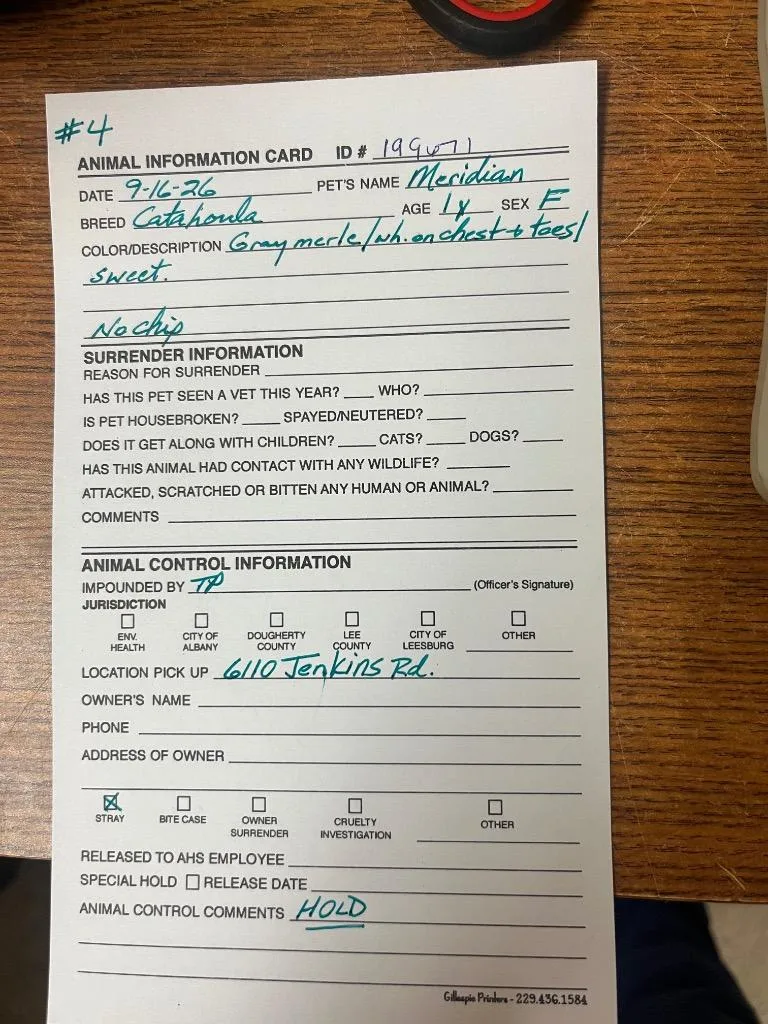 #4
ANIMAL INFORMATION CARD ID # 199671
DATE 9-16-26 PET'S NAME Meridian
BREED Catahoula AGE 1y SEX F
COLOR/DESCRIPTION Gray merle/wh. on chest + toes/
sweet.
No chip
SURRENDER INFORMATION
REASON FOR SURRENDER
HAS THIS PET SEEN A VET THIS YEAR? WHO?
IS PET HOUSEBROKEN? SPAYED/NEUTERED?
DOES IT GET ALONG WITH CHILDREN? CATS? DOGS?
HAS THIS ANIMAL HAD CONTACT WITH ANY WILDLIFE?
ATTACKED, SCRATCHED OR BITTEN ANY HUMAN OR ANIMAL?
COMMENTS
ANIMAL CONTROL INFORMATION
IMPOUNDED BY TP (Officer's Signature)
JURISDICTION
ENV. HEALTH CITY OF ALBANY DOUGHERTY COUNTY LEE COUNTY CITY OF LEESBURG OTHER
LOCATION PICK UP 6110 Jenkins Rd.
OWNER'S NAME
PHONE
ADDRESS OF OWNER
STRAY BITE CASE OWNER SURRENDER CRUELTY INVESTIGATION OTHER
RELEASED TO AHS EMPLOYEE
SPECIAL HOLD RELEASE DATE
ANIMAL CONTROL COMMENTS HOLD
Gillespie Printers - 229.436.1584